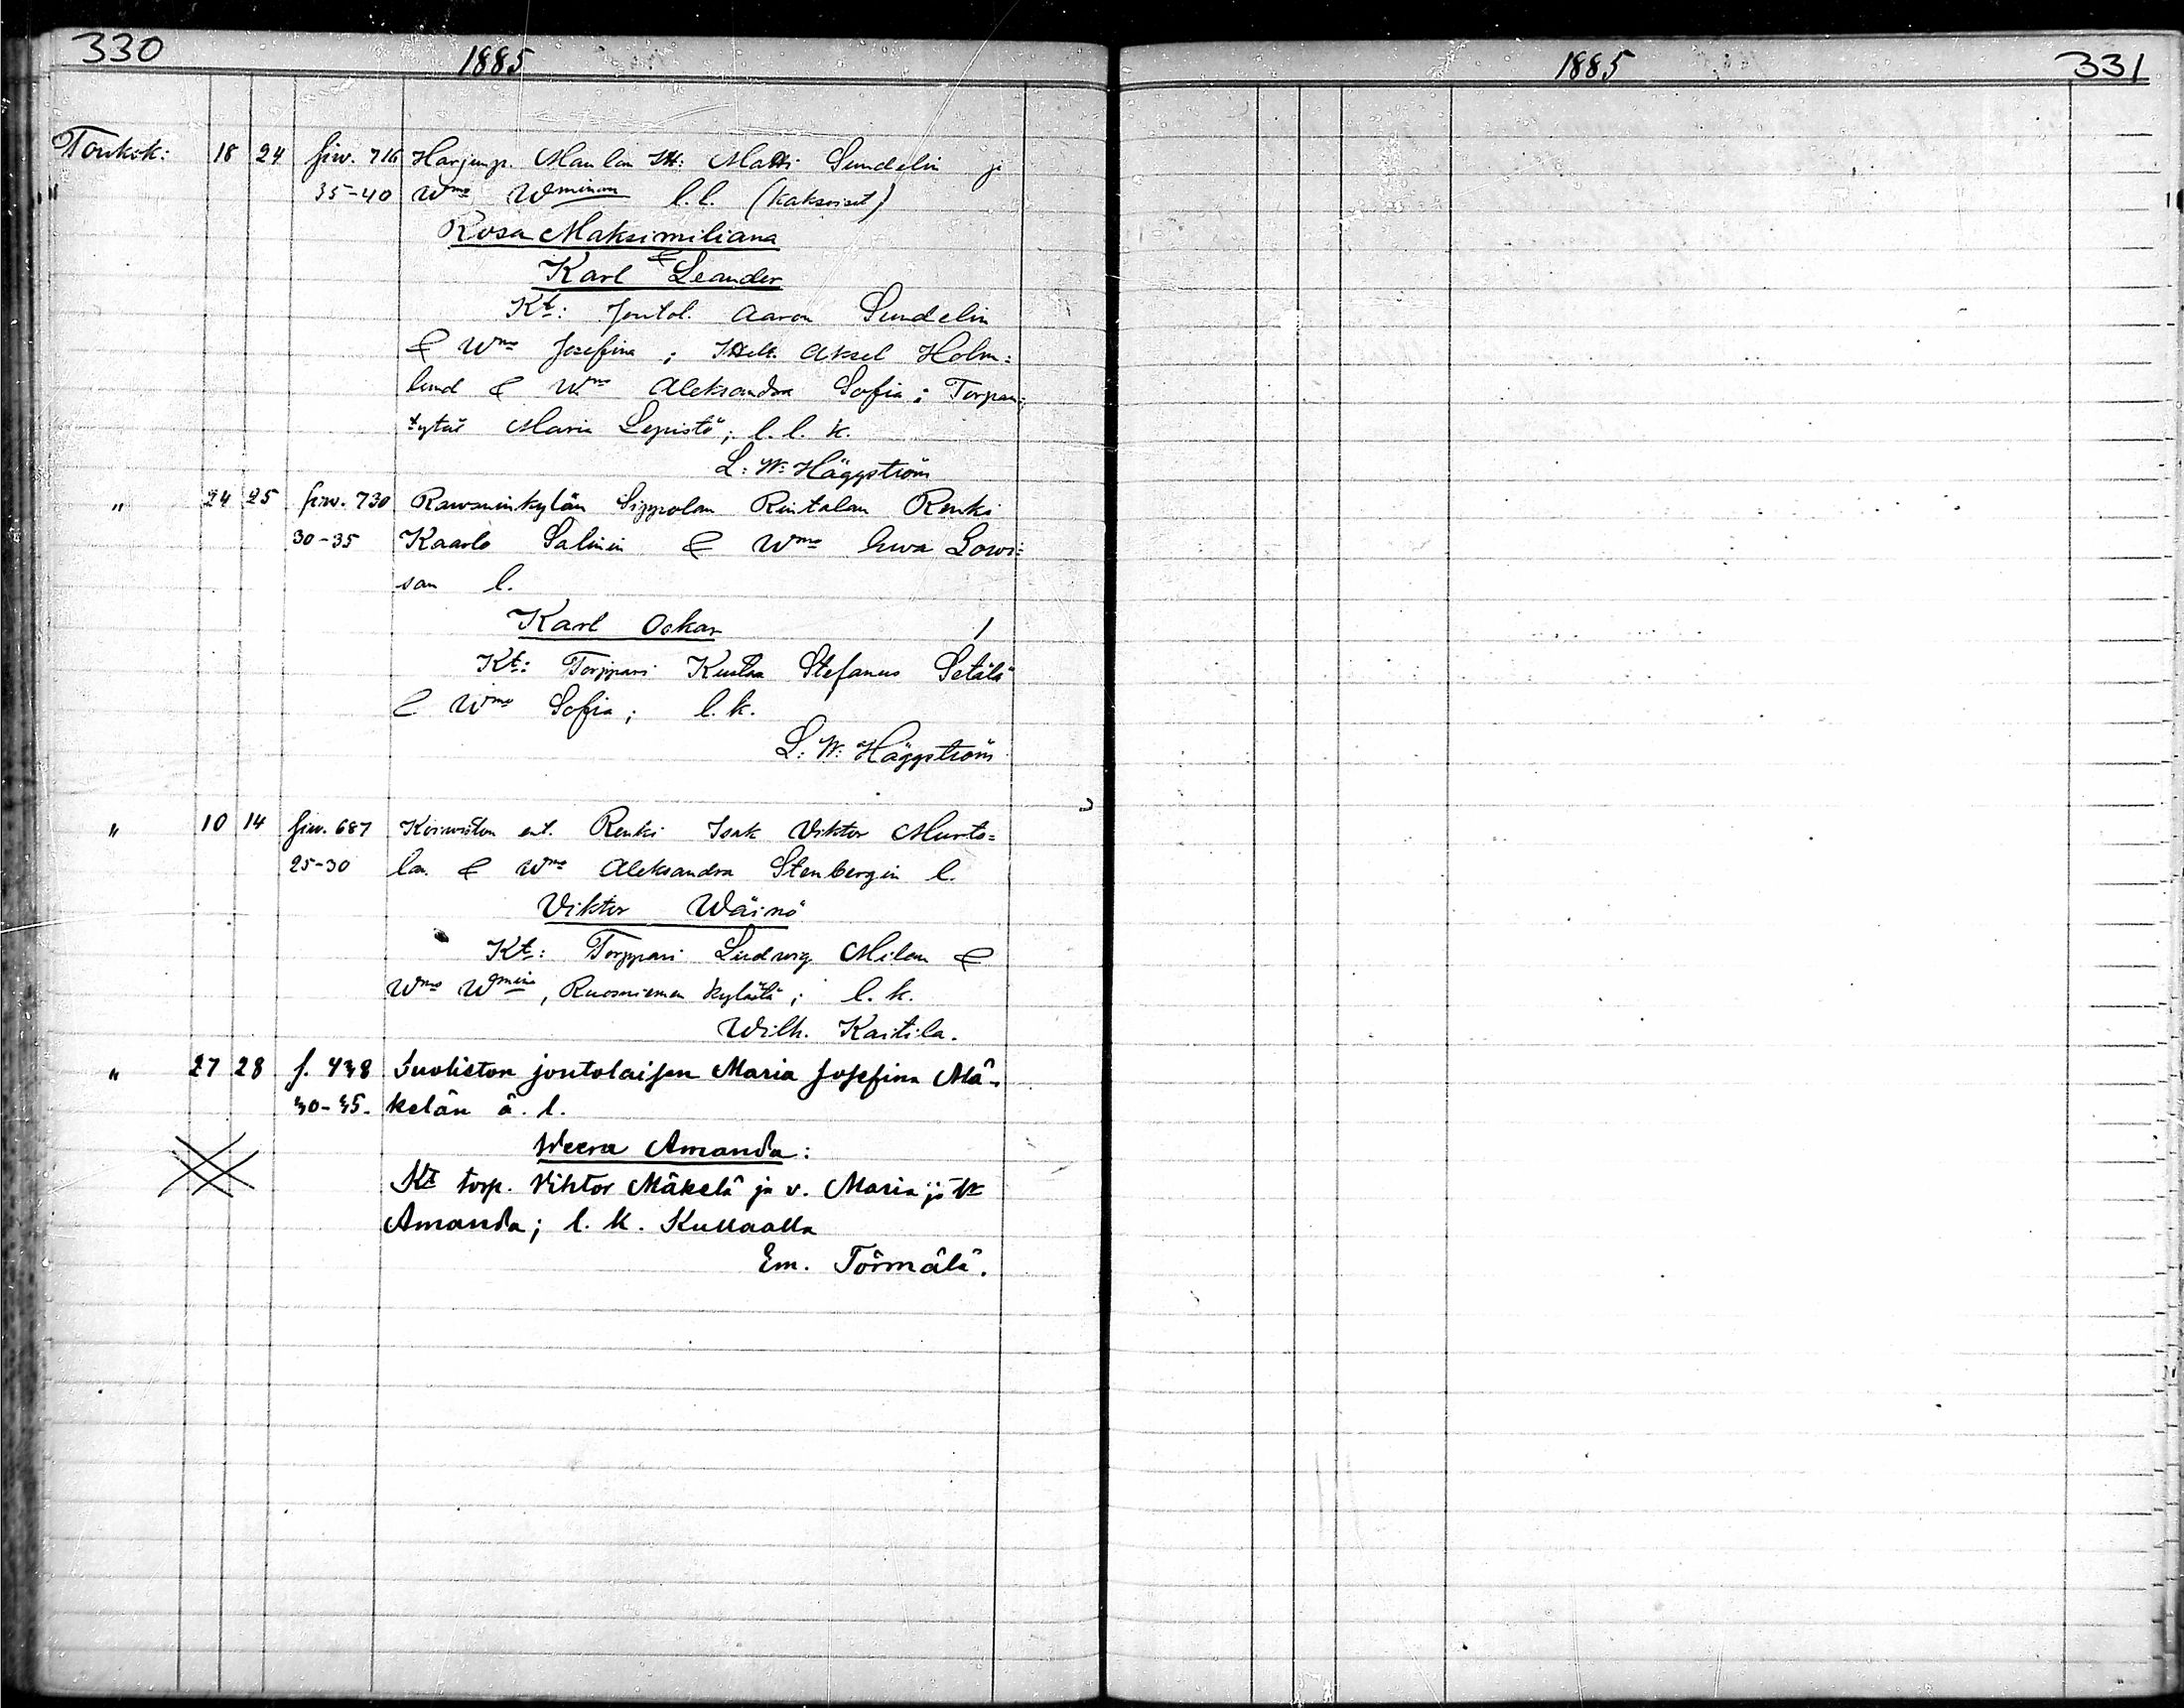 330 1885
Toukok: 18 24 siw. 716 Harjunp. Man lan Itt: Matti Sundelin ja
35-40 Wmo Wminan l.l. (kaksoiset)
Rosa Maksimiliana
&
Karl Leander
Kt: Joutol. Aaron Sundelin
& Wmo Josefina; Itell. Aksel Holm=
lund & Wmo Aleksandra Sofia; Torpan=
tytär Maria Lepistö; l. l. k.
L: W: Häggström
" 24 25 siw. 730 Rawaninkylän Sippolan Rintalan Renki
30-35 Kaarlo Salinin & Wmo Ewa Lowi=
san l.
Karl Oskar /
Kt: Torppari Kustaa Stefanus Setälä
& Wmo Sofia; l. k.
L: W: Häggström
" 10 14 siw. 687 Koiwiston ent. Renki Isak Viktor Murto=
25-30 lan & Wmo Aleksandra Stenbergin l.
Viktor Wäinö
Kt: Torppari Ludwig Milan &
Wmo Wmina, Ruosniemen kylästä; l. k.
Wilh. Kaitila.
" 27 28 s. 438 Suoliston joutolaisen Maria Josefina Mä-
30-35. kelän ä. l.
Weera Amanda:
Kt torp. Viktor Mäkelä ja v. Maria ja
Amanda; l. k. Kullaalla
Em. Törmälä.
1885 331